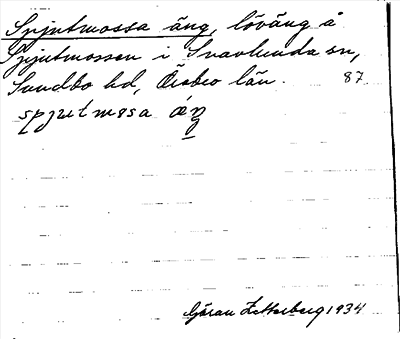 Spjutmossa äng, löväng å
Spjutmossen i Snavlunda sn,
Sundbo hd, Örebro län. 87
spjutmosa æŋ
Göran Zetterberg 1934